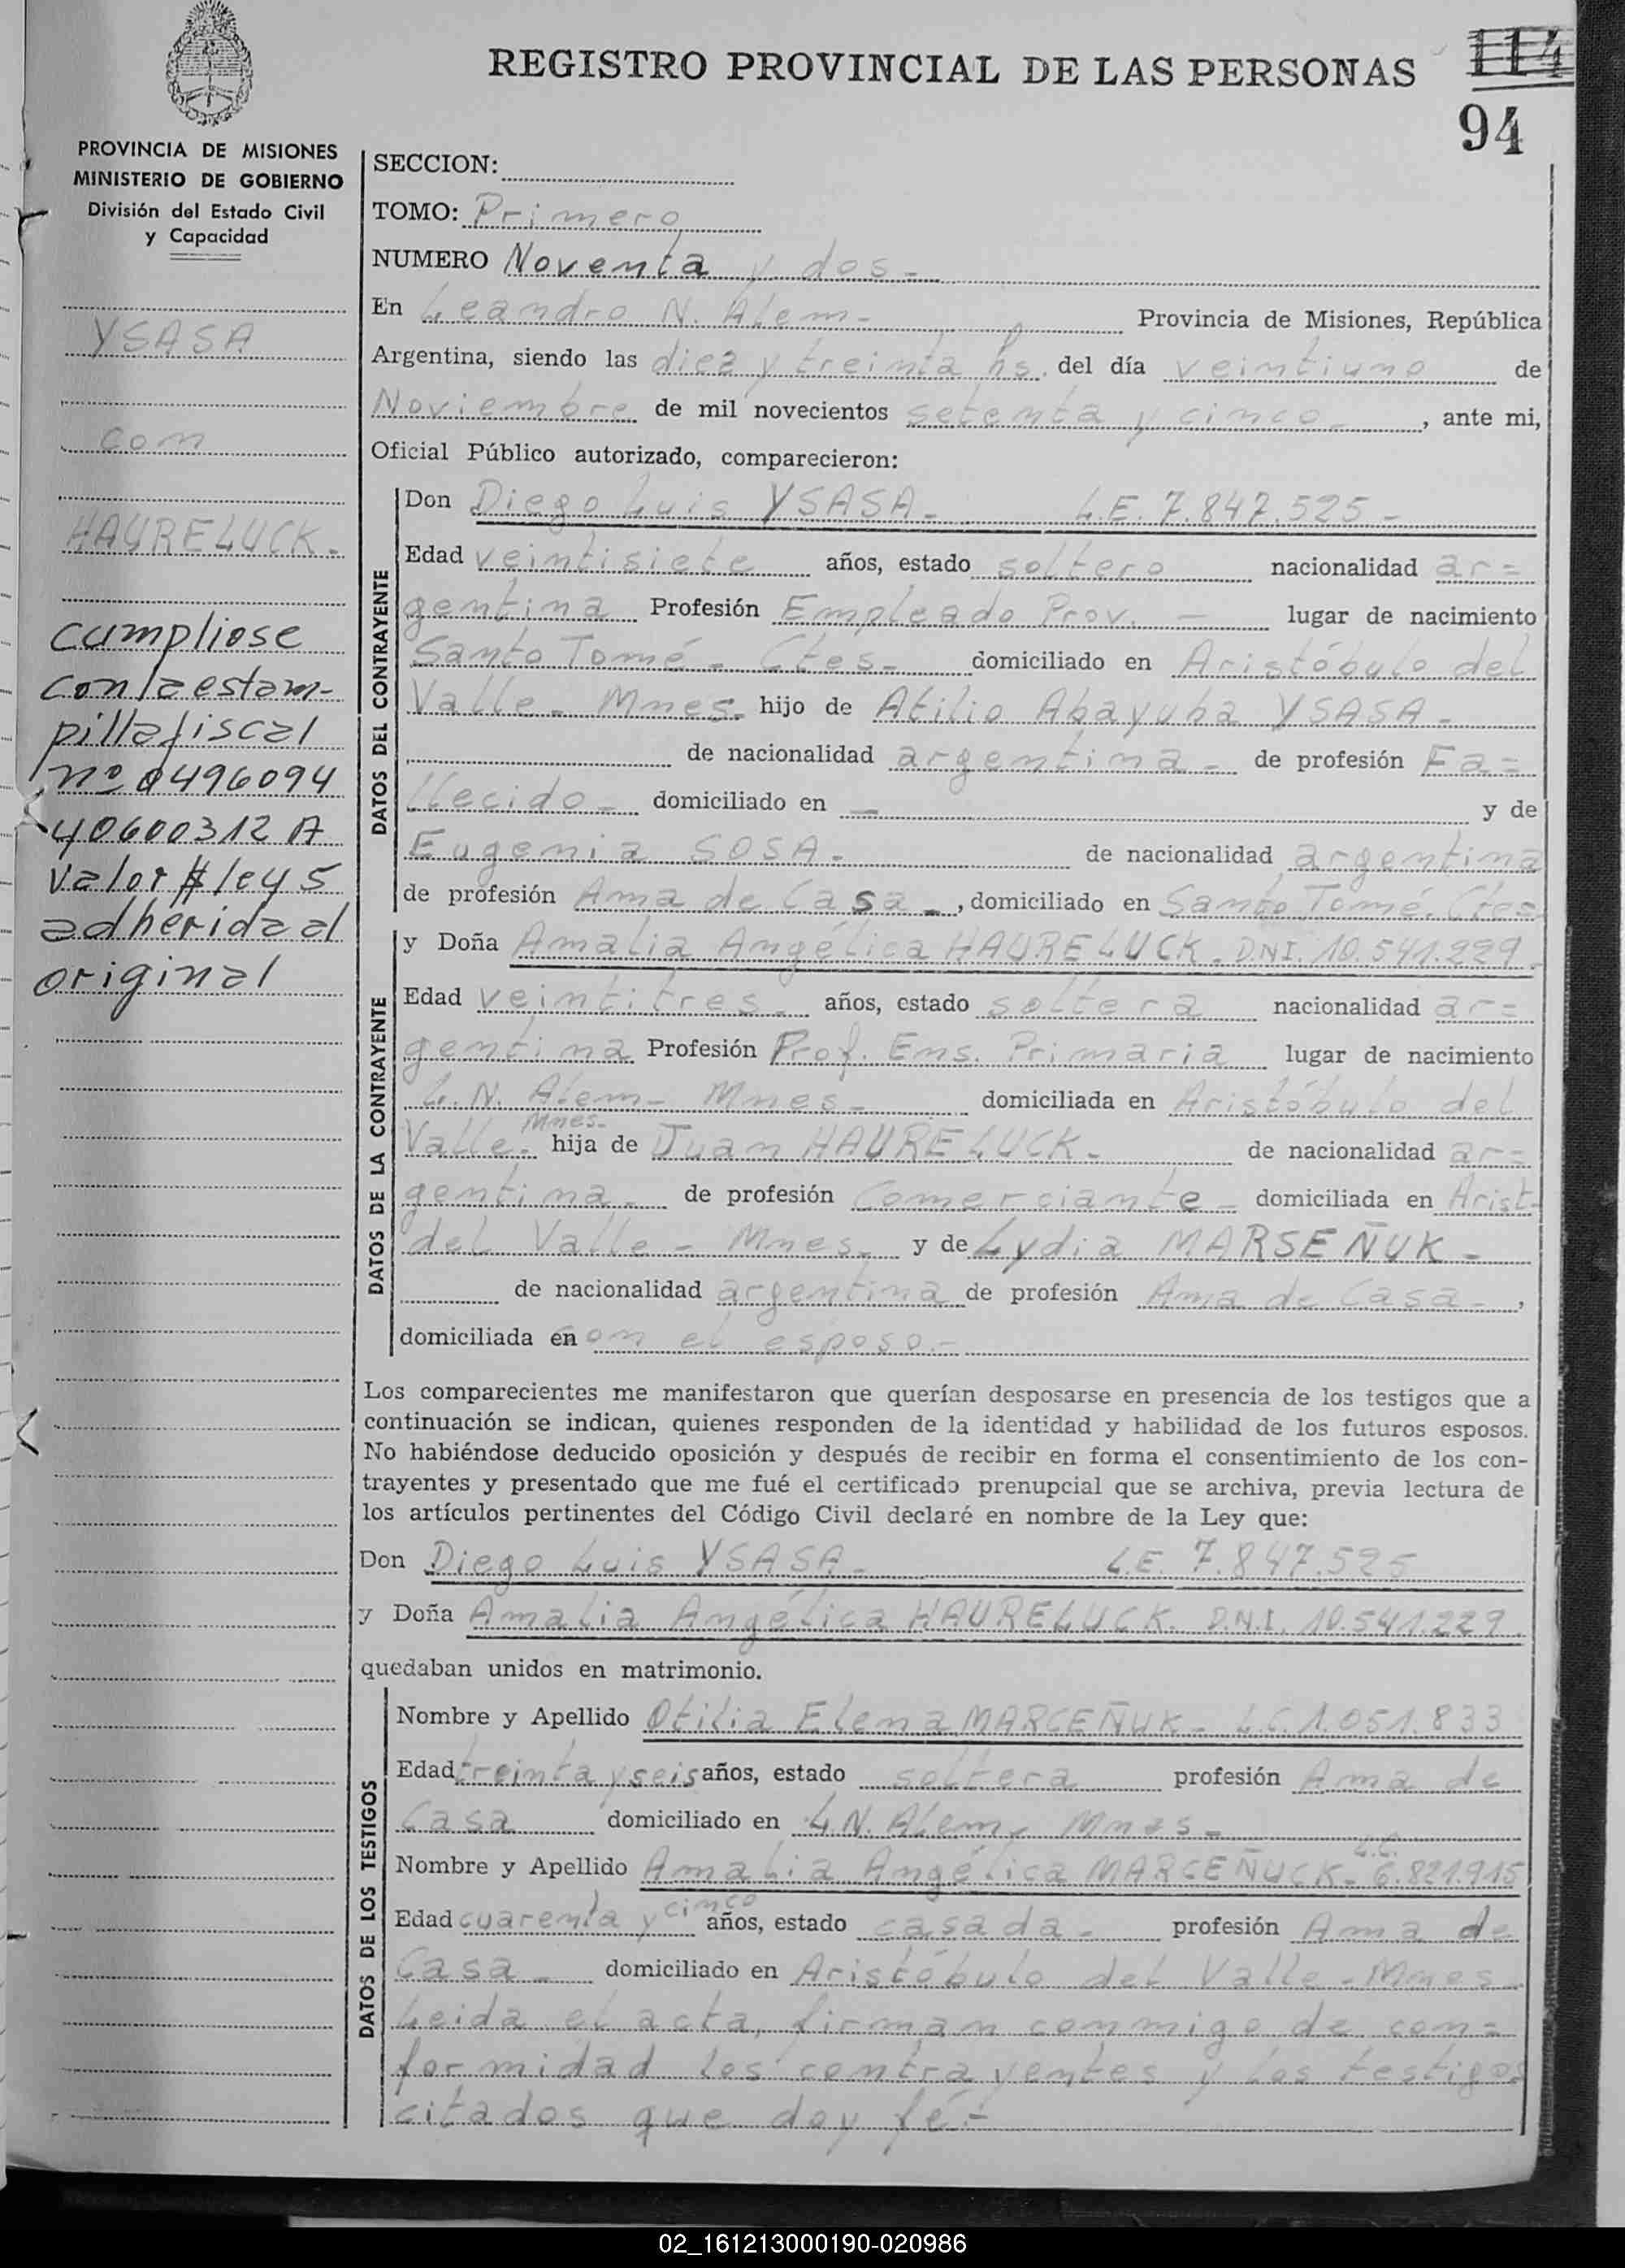 REGISTRO PROVINCIAL DE LAS PERSONAS
114
94
PROVINCIA DE MISIONES
MINISTERIO DE GOBIERNO
División del Estado Civil
y Capacidad
YSASA
con
HAURELUCK.
cumpliose
con la estam-
pilla fiscal
nº 0496094
40600312 A
valor $ ley 5
adherida al
original
SECCION:
TOMO: Primero
NUMERO Noventa y dos-
En Leandro N. Alem- Provincia de Misiones, República
Argentina, siendo las diez y treinta hs. del día veintiuno de
Noviembre de mil novecientos setenta y cinco-, ante mi,
Oficial Público autorizado, comparecieron:
DATOS DEL CONTRAYENTE
Don Diego Luis YSASA- L.E. 7.847.525-
Edad veintisiete años, estado soltero nacionalidad ar=
gentina Profesión Empleado Prov. - lugar de nacimiento
Santo Tomé- Ctes- domiciliado en Aristóbulo del
Valle- Mnes. hijo de Atilio Abayuba YSASA-
de nacionalidad argentina- de profesión Fa=
llecido- domiciliado en - y de
Eugenia SOSA- de nacionalidad argentina
de profesión Ama de Casa-, domiciliado en Santo Tomé. Ctes.
DATOS DE LA CONTRAYENTE
y Doña Amalia Angélica HAURELUCK. D.N.I. 10.541.229.
Edad veintitres- años, estado soltera nacionalidad ar=
gentina Profesión Prof. Ens. Primaria lugar de nacimiento
L.N. Alem- Mnes- domiciliada en Aristóbulo del
Valle- Mnes- hija de Juan HAURELUCK- de nacionalidad ar=
gentina- de profesión Comerciante- domiciliada en Arist-
del Valle- Mnes- y de Lydia MARSEÑUK-
de nacionalidad argentina de profesión Ama de Casa-,
domiciliada en con el esposo.-
Los comparecientes me manifestaron que querían desposarse en presencia de los testigos que a
continuación se indican, quienes responden de la identidad y habilidad de los futuros esposos.
No habiéndose deducido oposición y después de recibir en forma el consentimiento de los con-
trayentes y presentado que me fué el certificado prenupcial que se archiva, previa lectura de
los artículos pertinentes del Código Civil declaré en nombre de la Ley que:
Don Diego Luis YSASA- L.E. 7.847.525
y Doña Amalia Angélica HAURELUCK. D.N.I. 10.541.229.
quedaban unidos en matrimonio.
DATOS DE LOS TESTIGOS
Nombre y Apellido Otilia Elena MARCEÑUK- L.C. 1.051.833
Edad treinta y seis años, estado soltera profesión Ama de
Casa domiciliado en L.N. Alem- Mnes-
Nombre y Apellido Amalia Angélica MARCEÑUCK- L.C. 6.821.915
Edad cuarenta y cinco años, estado casada- profesión Ama de
Casa- domiciliado en Aristóbulo del Valle-Mnes-
Leida el acta, firman conmigo de con=
formidad los contrayentes y los testigos
citados que doy fé-
02_161213000190-020986